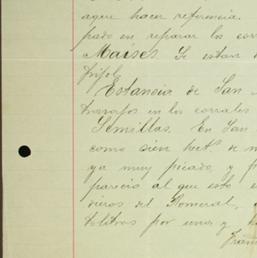 aque hacer referencia.
pado en reparar los corr
Maises Se estan
frijol
Estancia de San
trabajos en los corrales
Semillas. En San
como cien hect.s de m
ya muy picado, y
parecio al que esto e
dieros del Romeral,
tolitros por uno y